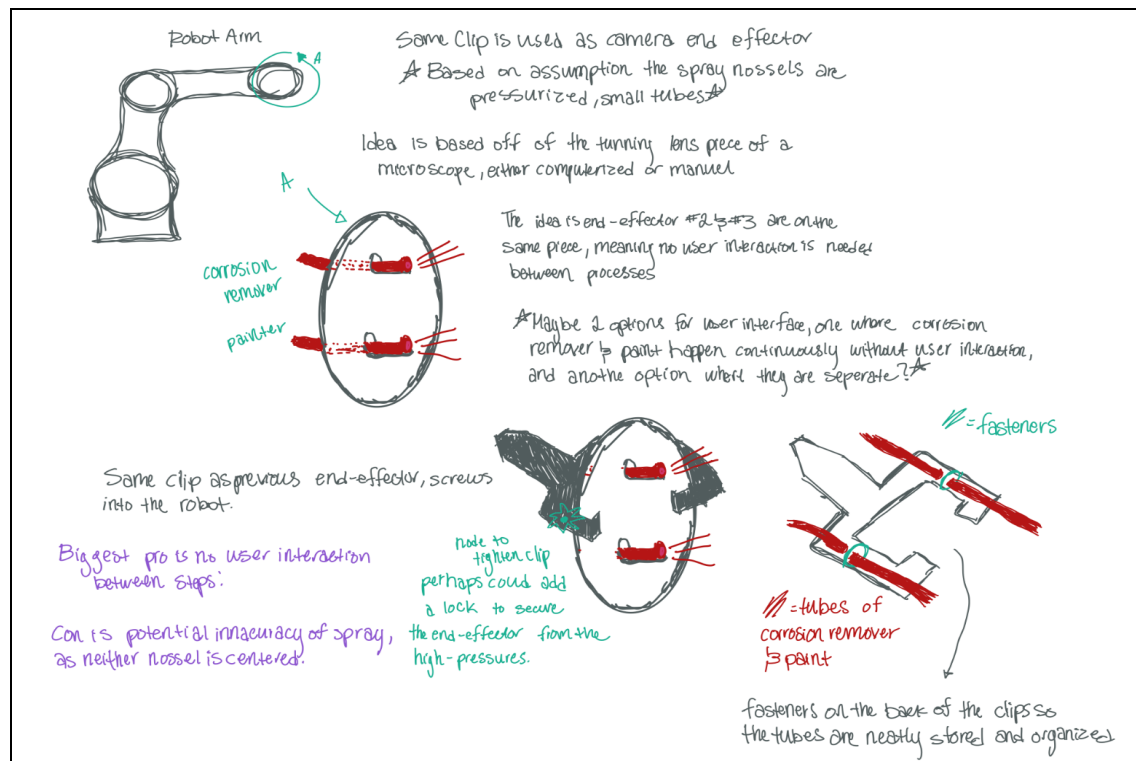 Robot Arm
A
Same Clip is used as camera end effector
☆ Based on assumption the spray nossels are
pressurized, small tubes ☆
Idea is based off of the tunning lens piece of a
microscope, either computerized or manuel
A
The idea is end-effector #2 & #3 are on the
same piece, meaning no user interaction is needed
between processes
corrosion
remover
painter
☆ Maybe 2 options for user interface, one where corrosion
remover & paint happen continuously without user interaction,
and anothe option where they are seperate? ☆
= fasteners
Same clip as previous end-effector, screws
into the robot.
Biggest pro is no user interaction
between steps!
Con is potential innacuracy of spray,
as neither nossel is centered.
node to
tighten clip
perhaps could add
a lock to secure
the end-effector from the
high-pressures.
= tubes of
corrosion remover
& paint
fasteners on the back of the clips so
the tubes are neatly stored and organized